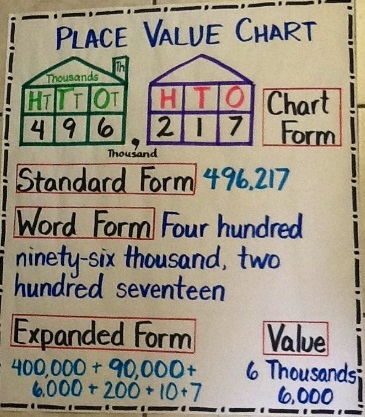 PLACE VALUE CHART
Th
Thousands
HT TT OT
4 9 6 ,
Thousand
H T O
2 1 7
Chart
Form
Standard Form 496,217
Word Form Four hundred
ninety-six thousand, two
hundred seventeen
Expanded Form
400,000 + 90,000+
6,000 + 200 + 10+7
Value
6 Thousands
6,000